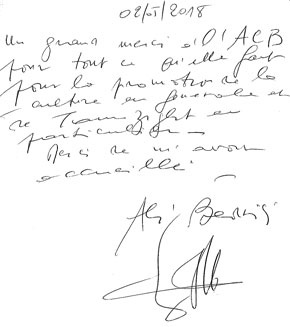 02/05/2018
Un grand merci à l'ACB
pour tout ce qu'elle fait
pour la promotion de la
culture en générale et
de Tamazight en
particulier
Merci de m'avoir
accueilli
Ali